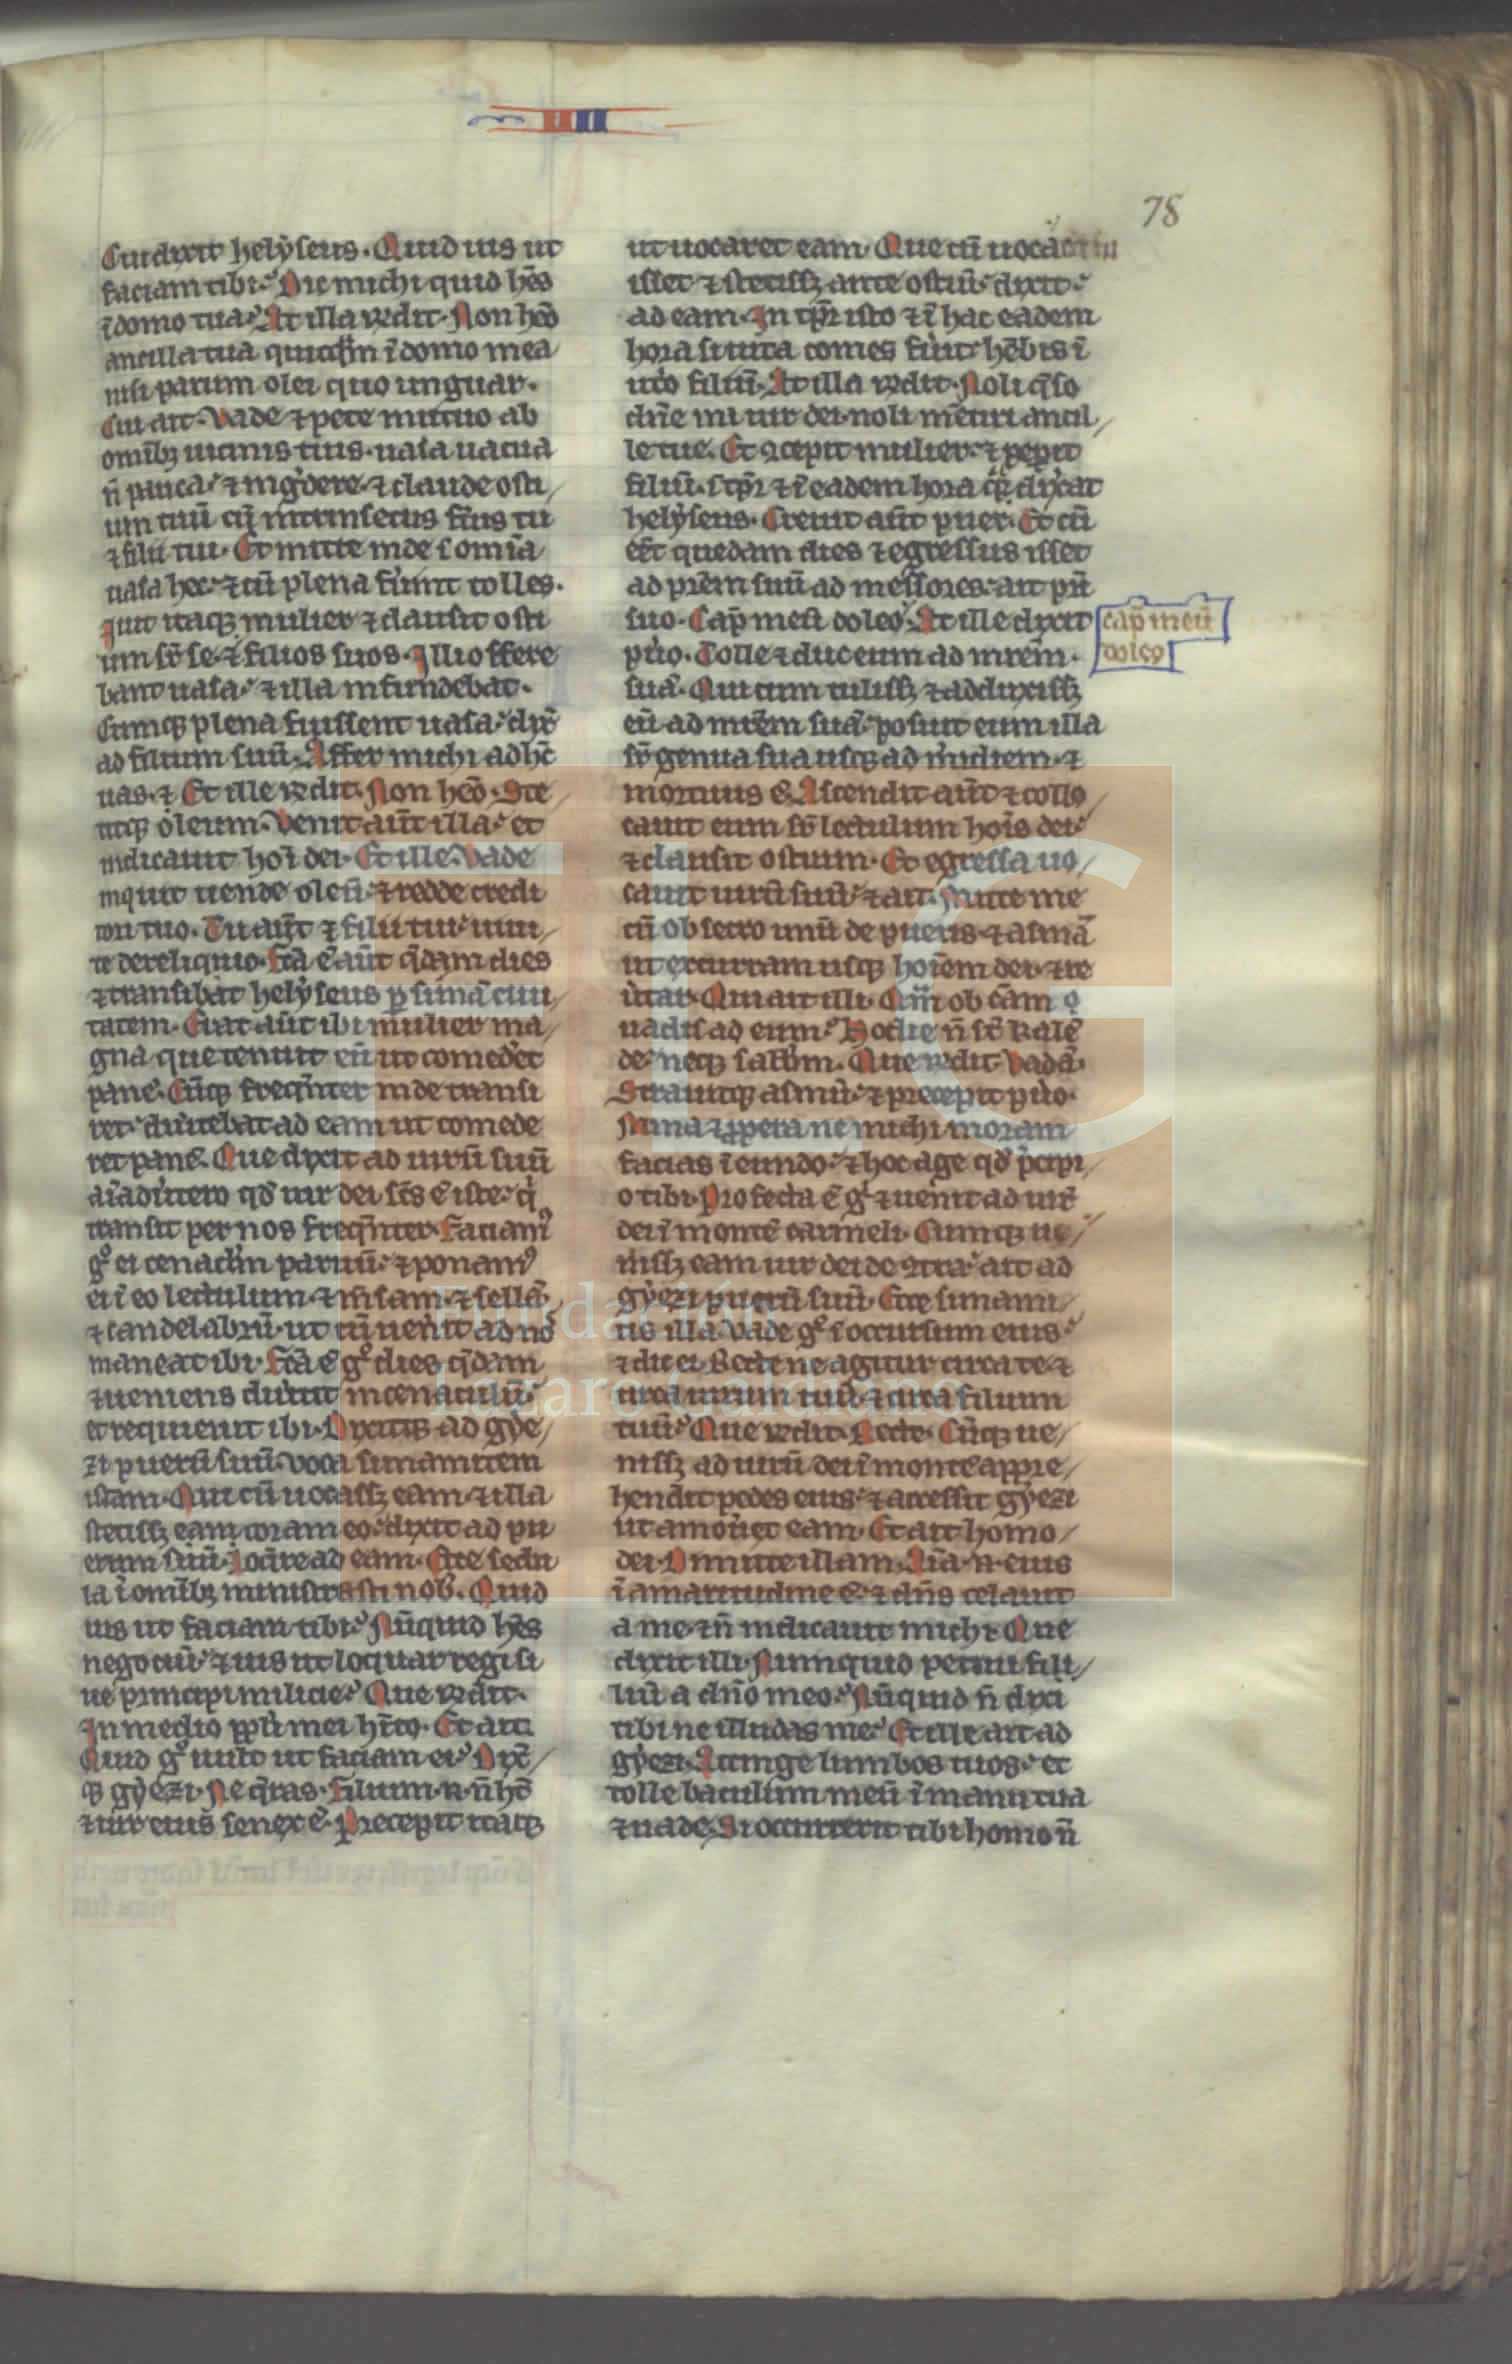 II
78
Cui dixit helyseus. Quid uis ut
faciam tibi? Dic michi quid hēs
ī domo tua? At illa r̄ndit. Non heō
ancilla tua quicq̄m ī domo mea
nisi parum olei quo unguar.
Cui ait. Vade ⁊ pete mutuo ab
omīb; uicinis tuis. uasa uacua
n̄ pauca. ⁊ ing̃dere. ⁊ claude osti
um tuū cū intrinsecus fūis tu
⁊ filii tui. Et mitte inde ī omīa
uasa hec. ⁊ cū plena fūint tolles.
Iuit itaq; mulier ⁊ clausit osti
um sr̄ se ⁊ filios suos. Illi offere
bant uasa. ⁊ illa infundebat.
Cumq; plena fuissent uasa. dix̄
ad filium suū. Affer michi adhc̄
uas. Et ille r̄ndit. Non heō. Ste
titq; oleum. Venit aūt illa. et
indicauit hoī dei. Et ille. Vade
inquit uende oleū. ⁊ redde credi
tori tuo. Tu aūt ⁊ filii tui. uiui
te de reliquo. Fc̄a ē aūt q̄dam dies
⁊ transibat helyseus p̲ sunā ciui
tatem. Erat aūt ibi mulier ma
gna que tenuit eū ut comed'et
panē. Cūq; freq̄nter inde transi
ret. diu'tebat ad eam ut comede
ret panē. Que dixit ad uirū suū
aīaduerto qd' uir dei sc̄s ē iste. q'
transit per nos freq̄nter. Faciam᷒
g° ei cenac'lm paruū. ⁊ ponam᷒
ei ī eo lectulum. ⁊ m̄sam. ⁊ sellā.
⁊ candelabrū. ut cū uen'it ad nos
maneat ibi. Fc̄a ē g° dies q̄dam
⁊ ueniens diu'tit in cenaculū.
et requieuit ibi. Dixitq; ad gye
zi puerū suū. Voca sunamitem
istam. Qui cū uocass; eam. ⁊ illa
stetiss; eam coram eo. dixit ad pu
erum suū. Loq̄re ad eam. Ecce sedu
la ī omīb; ministrasti nob'. Quid
uis ut faciam tibi? Nūquid hēs
negociū. ⁊ uis ut loquar regi si
ue principi milicie? Que r̄ndit.
In medio pp̲li mei hīto. Et ait.
Quid g° uult ut faciam ei? Dix̄
q; gyezi. Ne q̄ras. Filium. n. n̄ hc̄
⁊ uir eius senex ē. Precepit itaq;
ut uocaret eam. Que cū uocata fu
isset ⁊ stetiss; ante ostiū. dixit.
ad eam. In tp̄r isto ⁊ ī hac eadem
hora si uita comes fu'it. hēbis ī
ut'o filiū. At illa r̄ndit. Noli q̄so
dn̄e mi uir dei. noli mētiri ancil
le tue. Et ꝯcepit mulier. ⁊ pep̲it
filiū. ī tp̄r ⁊ ī eadem hora q̄ dix'at
helyseus. Creuit aūt puer. Et cū
eēt quedam dies ⁊ egressus isset
ad pr̄em suū ad messores. ait pr̄i
suo. Cap̄ meū doleo. At ille dixit
pu'o. Tolle ⁊ duc eum ad mr̄em.
suā. Qui cum tuliss; ⁊ adduxiss;
eū ad mr̄em suā. posuit eum illa
sr̄ genua sua usq; ad m'idiem. ⁊
mortuus ē. Ascendit aūt ⁊ collo
cauit eum sr̄ lectulum hoīs dei.
⁊ clausit ostium. Et egressa uo
cauit uirū suū. ⁊ ait. Mitte me
cū obsecro unū de pueris ⁊ asinā
ut excurram usq; hoīem dei. ⁊ re
u'tar. Qui ait illi. Qm̄ ob cām
uadis ad eum? Hodie n̄ st̄ kalē
de. neq; sab'm. Que r̄ndit. Vadā.
Strauitq; asinū. ⁊ precepit pu'o.
Mina ⁊ pp̲era ne michi moram
facias ī eundo. ⁊ hoc age qd' p'cipi
o tibi. Profecta ē g° ⁊ uenit ad uir̄
dei ī montē carmeli. Cumq; ui
diss; eam uir dei de ꝯtra. ait ad
gyezi puerū suū. Ecce sunami
tis illa. Vade g° ī occursum eius.
⁊ dic ei. Recte ne agitur circa te. ⁊
circa uirum tuū. ⁊ circa filium
tuū? Que r̄ndit. Recte. Cūq; ue
niss; ad uirū dei ī montē appre
hendit pedes eius. ⁊ accessit gyezi
ut amou'et eam. Et ait homo
dei. Dimitte illam. Aīa. n. eius
ī amaritudine ē. ⁊ dn̄s celauit
a me. ⁊ n̄ indicauit michi. Que
dixit illi. Numquid petiui fili
ium a dn̄o meo? Nūquid n̄ dixi
tibi ne illudas me? Et ille ait ad
gyezi. Accinge lumbos tuos. et
tolle baculum meū ī manu tua
⁊ uade. Si occurrerit tibi homo n̄
cap̄ meū
doleo
Fundación
Lázaro Galdiano